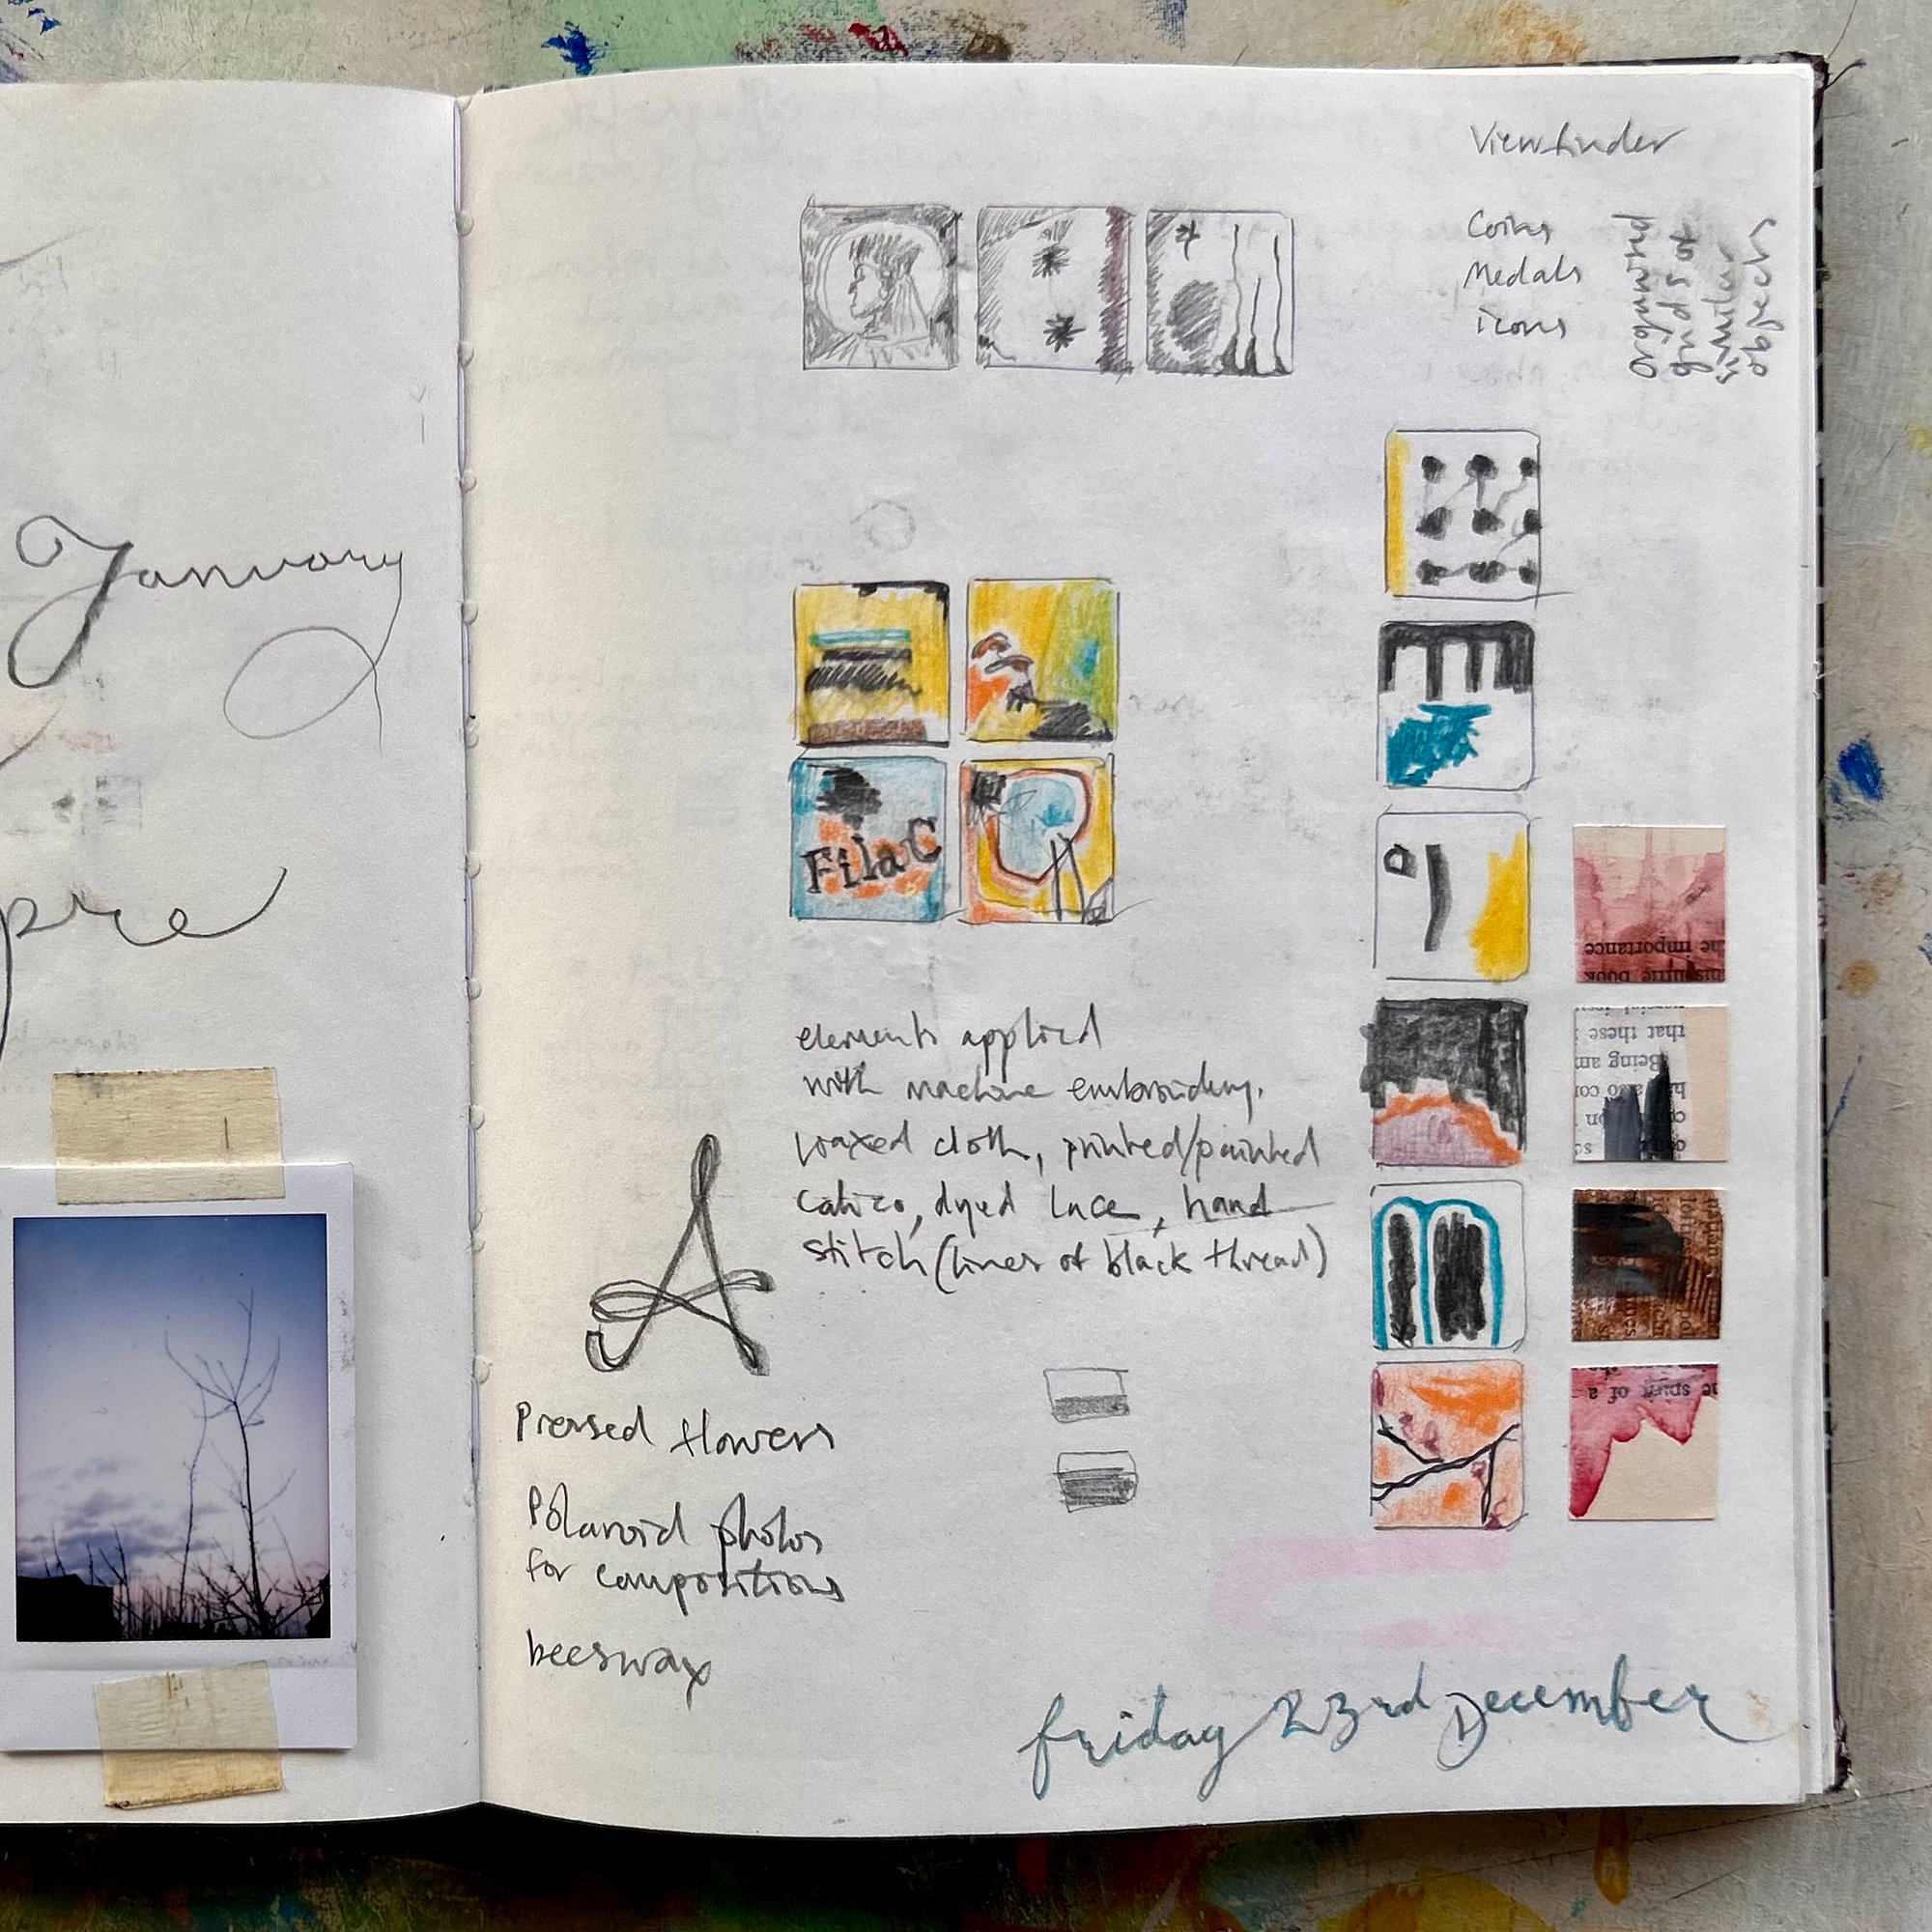 January
pre
Viewfinder
Coins
Medals
icons
organised
grids of
similar
objects
FilaC
elements applied
with machine embroidery.
waxed cloth, printed/painted
calico, dyed lace, hand
stitch (lines of black thread)
A
Pressed flowers
Polaroid photos
for compositions
beeswax
he importance
his little book
that these
Being am
also co
on
he spirit of a
friday 23rd December